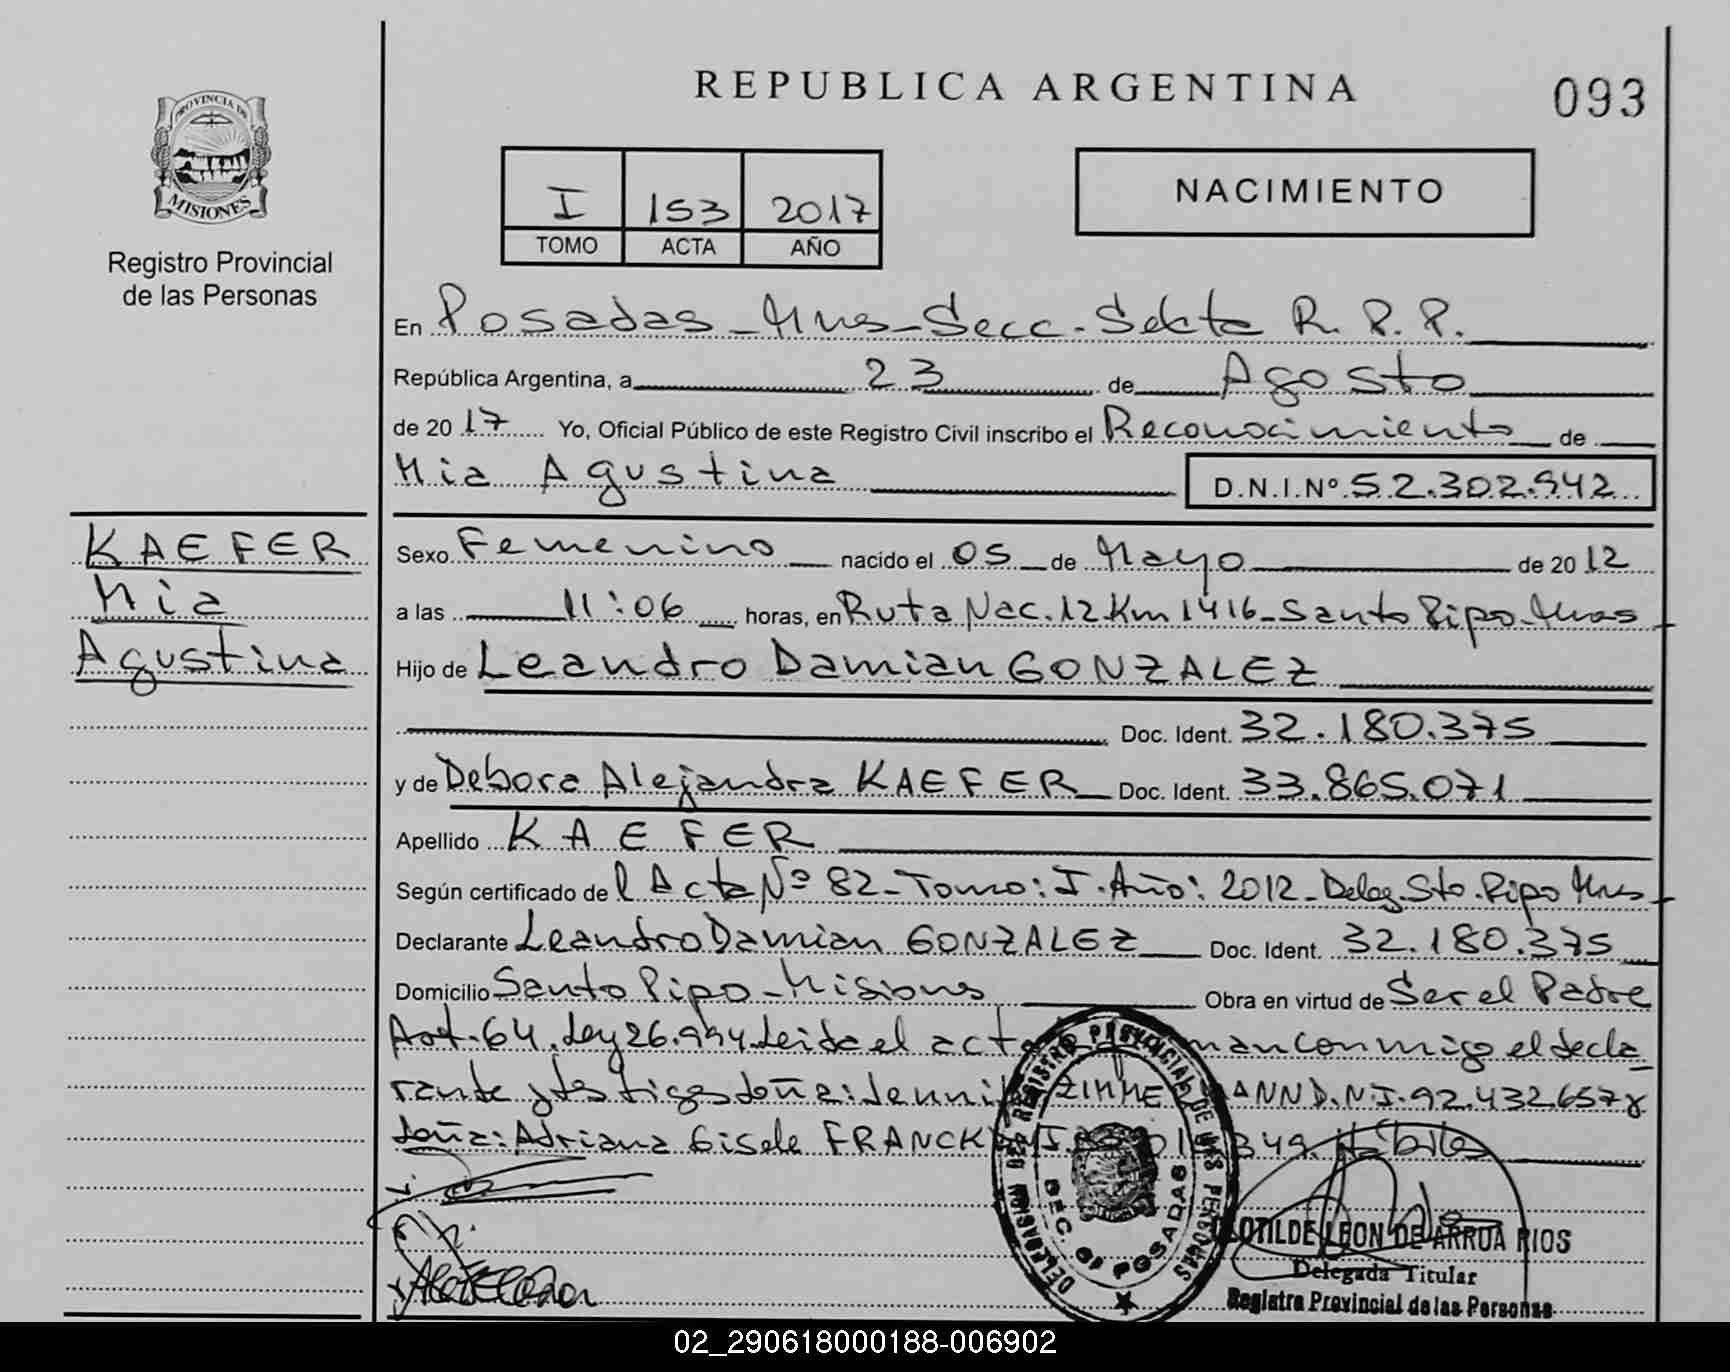 REPUBLICA ARGENTINA
093
PROVINCIA DE
MISIONES
Registro Provincial
de las Personas
I 153 2017
TOMO ACTA AÑO
NACIMIENTO
En Posadas - Mnes - Secc. Sexta R. P. P.
República Argentina, a 23 de Agosto
de 2017 Yo, Oficial Público de este Registro Civil inscribo el Reconocimiento de
Mia Agustina D.N.I.Nº 52.302.942
KAEFER
Mia
Agustina
Sexo Femenino nacido el 05 de Mayo de 2012
a las 11:06 horas, en Ruta Nac. 12 Km 1416 - Santo Pipo - Mnes
Hijo de Leandro Damian GONZALEZ
Doc. Ident. 32.180.375
y de Debora Alejandra KAEFER Doc. Ident. 33.865.071
Apellido KAEFER
Según certificado del Acta Nº 82 - Tomo: I. Año: 2012 - Deleg. Sto. Pipo Mnes
Declarante Leandro Damian GONZALEZ Doc. Ident. 32.180.375
Domicilio Santo Pipo - Misiones Obra en virtud de Ser el Padre
Art. 64. Ley 26.994. Leida el acta man conmigo el decla
rante y testigos doña: ZIMME ANN D.N.I. 92.432.657 y
doña: Adriana Gisele FRANCK 349. Hábiles
DELEGACION DEL REGISTRO PROVINCIAL DE LAS PERSONAS
SEC. 6ª POSADAS
CLOTILDE LEON DE ARRUA RIOS
Delegada Titular
Registro Provincial de las Personas
02_290618000188-006902